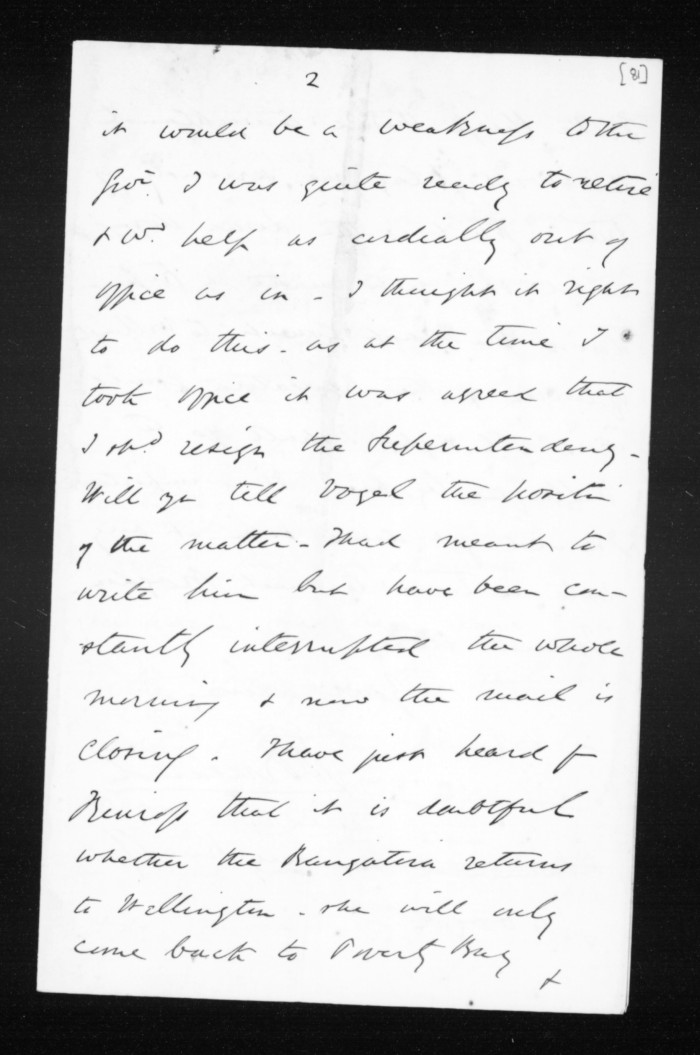 2
[81]
it would be a weakness to the
Govt. I was quite ready to retire
& wd. help as cordially out of
office as in - I thought it right
to do this - as at the time I
took office it was agreed that
I shd. resign the Superintendency -
Will yu tell Vogel the position
of the matter - I had meant to
write him but have been con-
stantly interrupted the whole
morning & now the mail is
closing. I have just heard fr
that it is doubtful
whether the Rangatira returns
to Wellington - she will only
come back to Poverty Bay
&